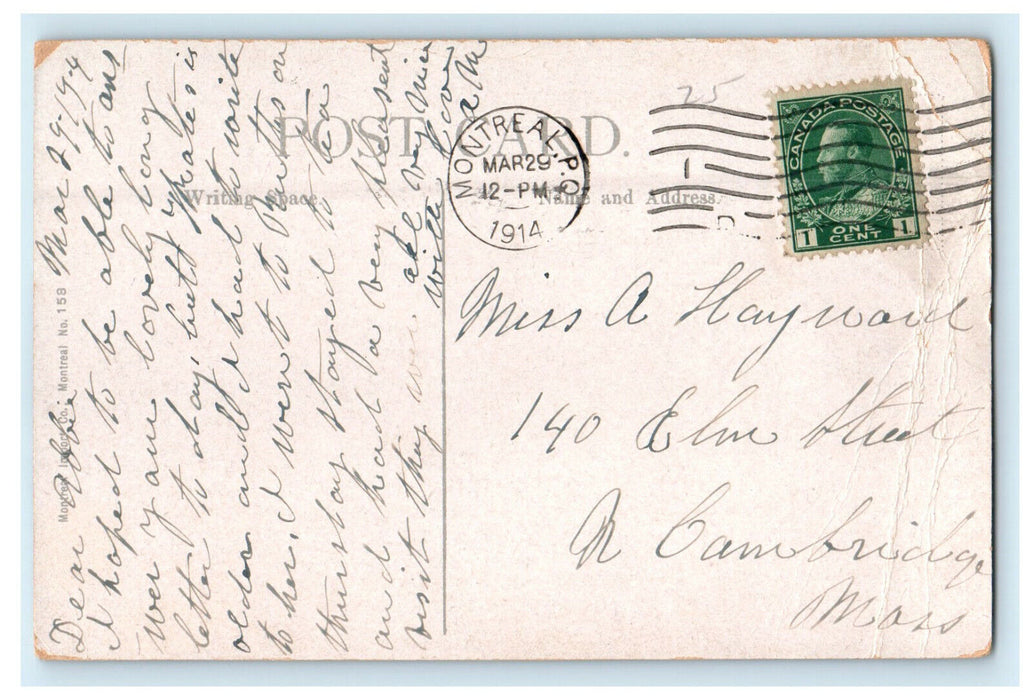 POST CARD.
Writing Space.
Name and Address.
Montreal Import Co., Montreal No. 158
MONTREAL, P.Q.
MAR 29
12-PM
1914
1
D
25
CANADA POSTAGE
1 ONE CENT 1
Dear Abbie Mar 29/14
I hoped to be able to ans
wer your lovely long
letter to day, but Phate is
older and I had to write
to her, I went to on
thursday stayed to tea
and had a very pleasent
visit they were all very nice
with love
A M
Miss A Hayward
140 Elm Street
N Cambridge
Mass